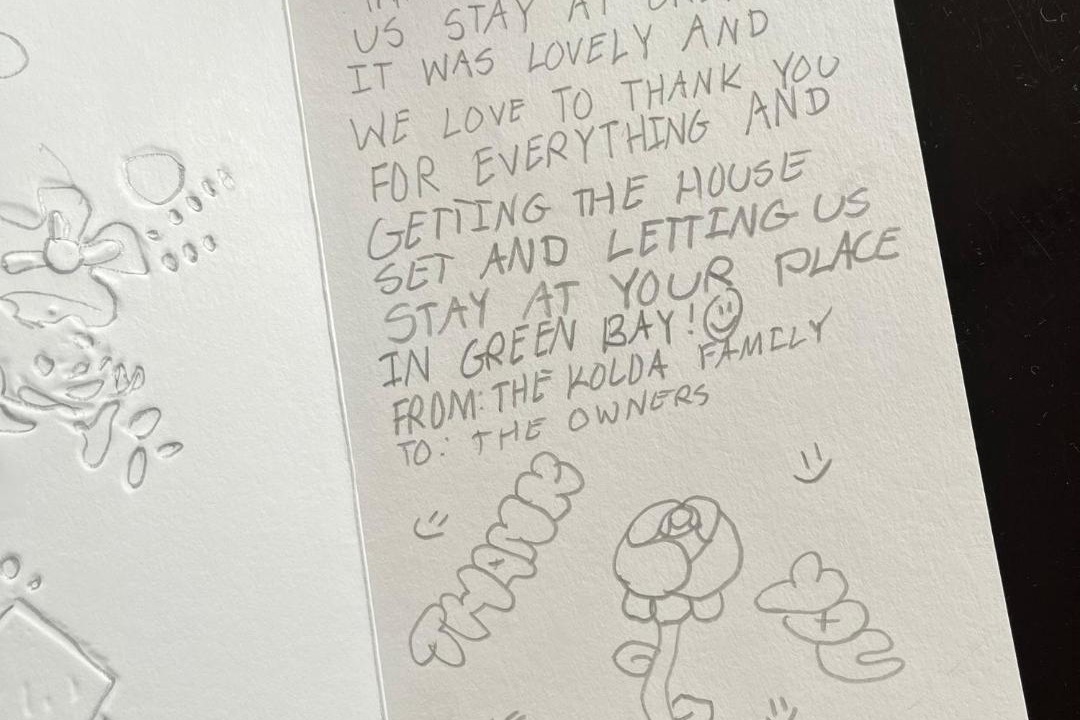 US STAY AT
IT WAS LOVELY AND
WE LOVE TO THANK YOU
FOR EVERYTHING AND
GETTING THE HOUSE
SET AND LETTING US
STAY AT YOUR PLACE
IN GREEN BAY!
FROM: THE KOLDA FAMILY
TO: THE OWNERS
THANK
YOU